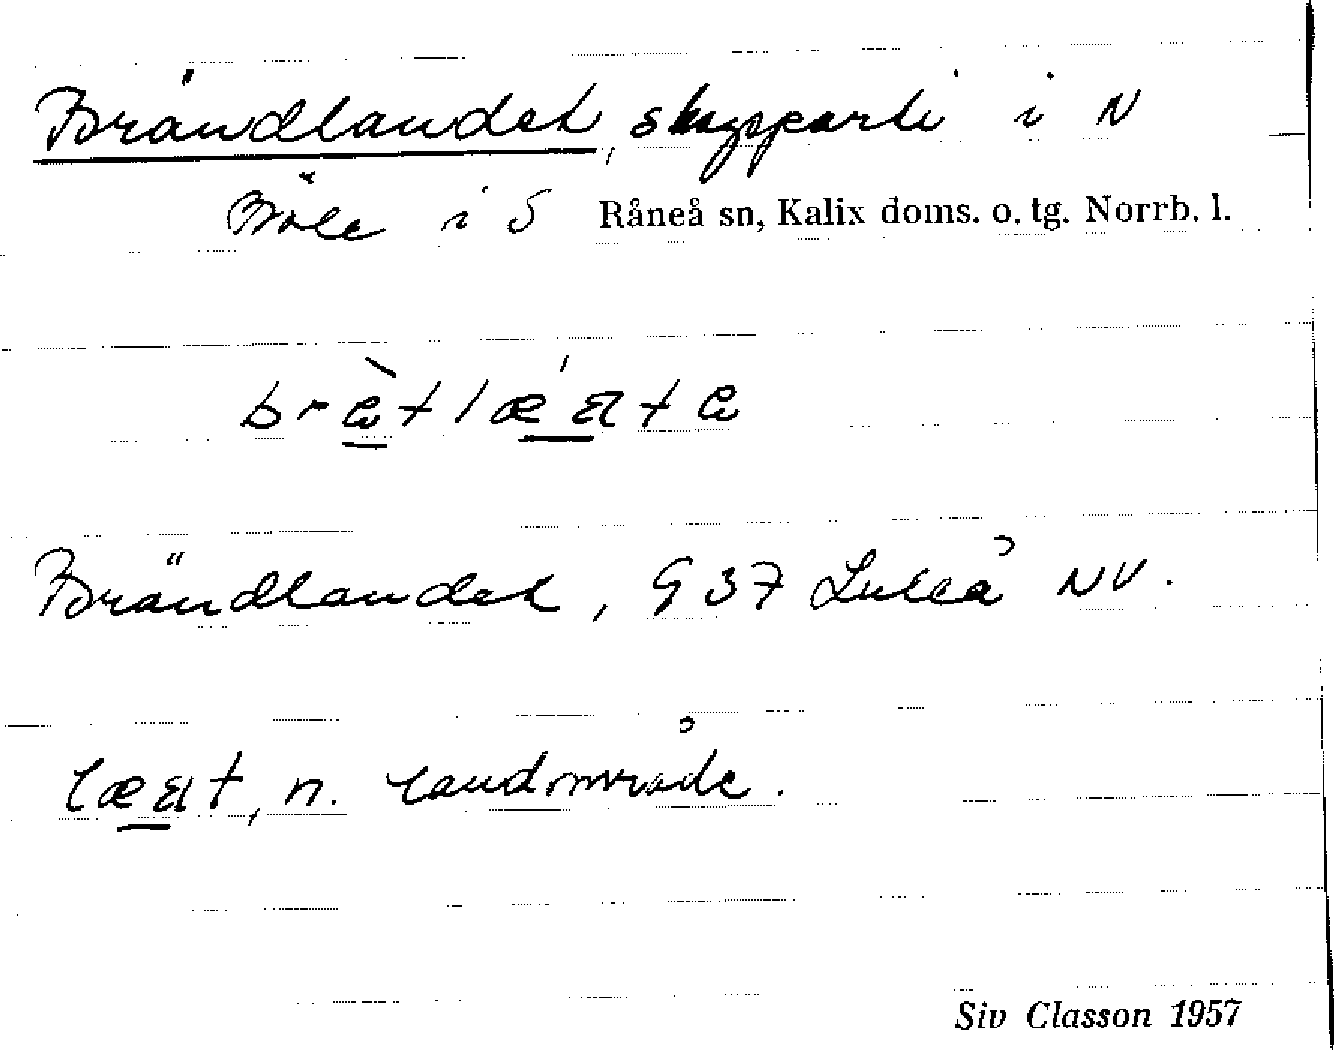 Brändlandet, skogsparti i N
Böle i S Råneå sn, Kalix doms. o. tg. Norrb. l.
Brändlandet, G 37 Luleå NV.
n. landområde.
Siv Classon 1957